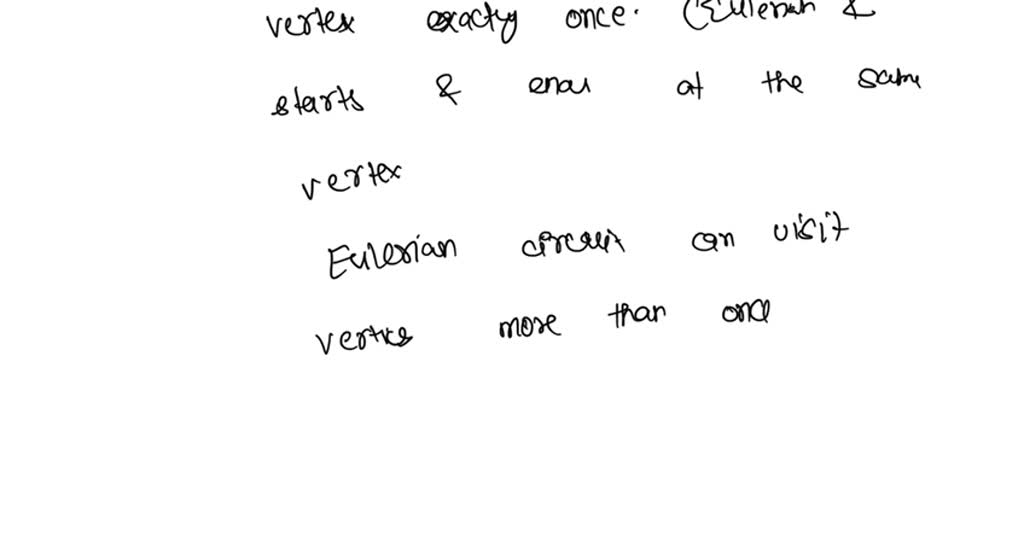 vertex exacty once. (Eulerian &
starts & ends at the same
vertex
Eulerian circuit can visit
vertics more than once